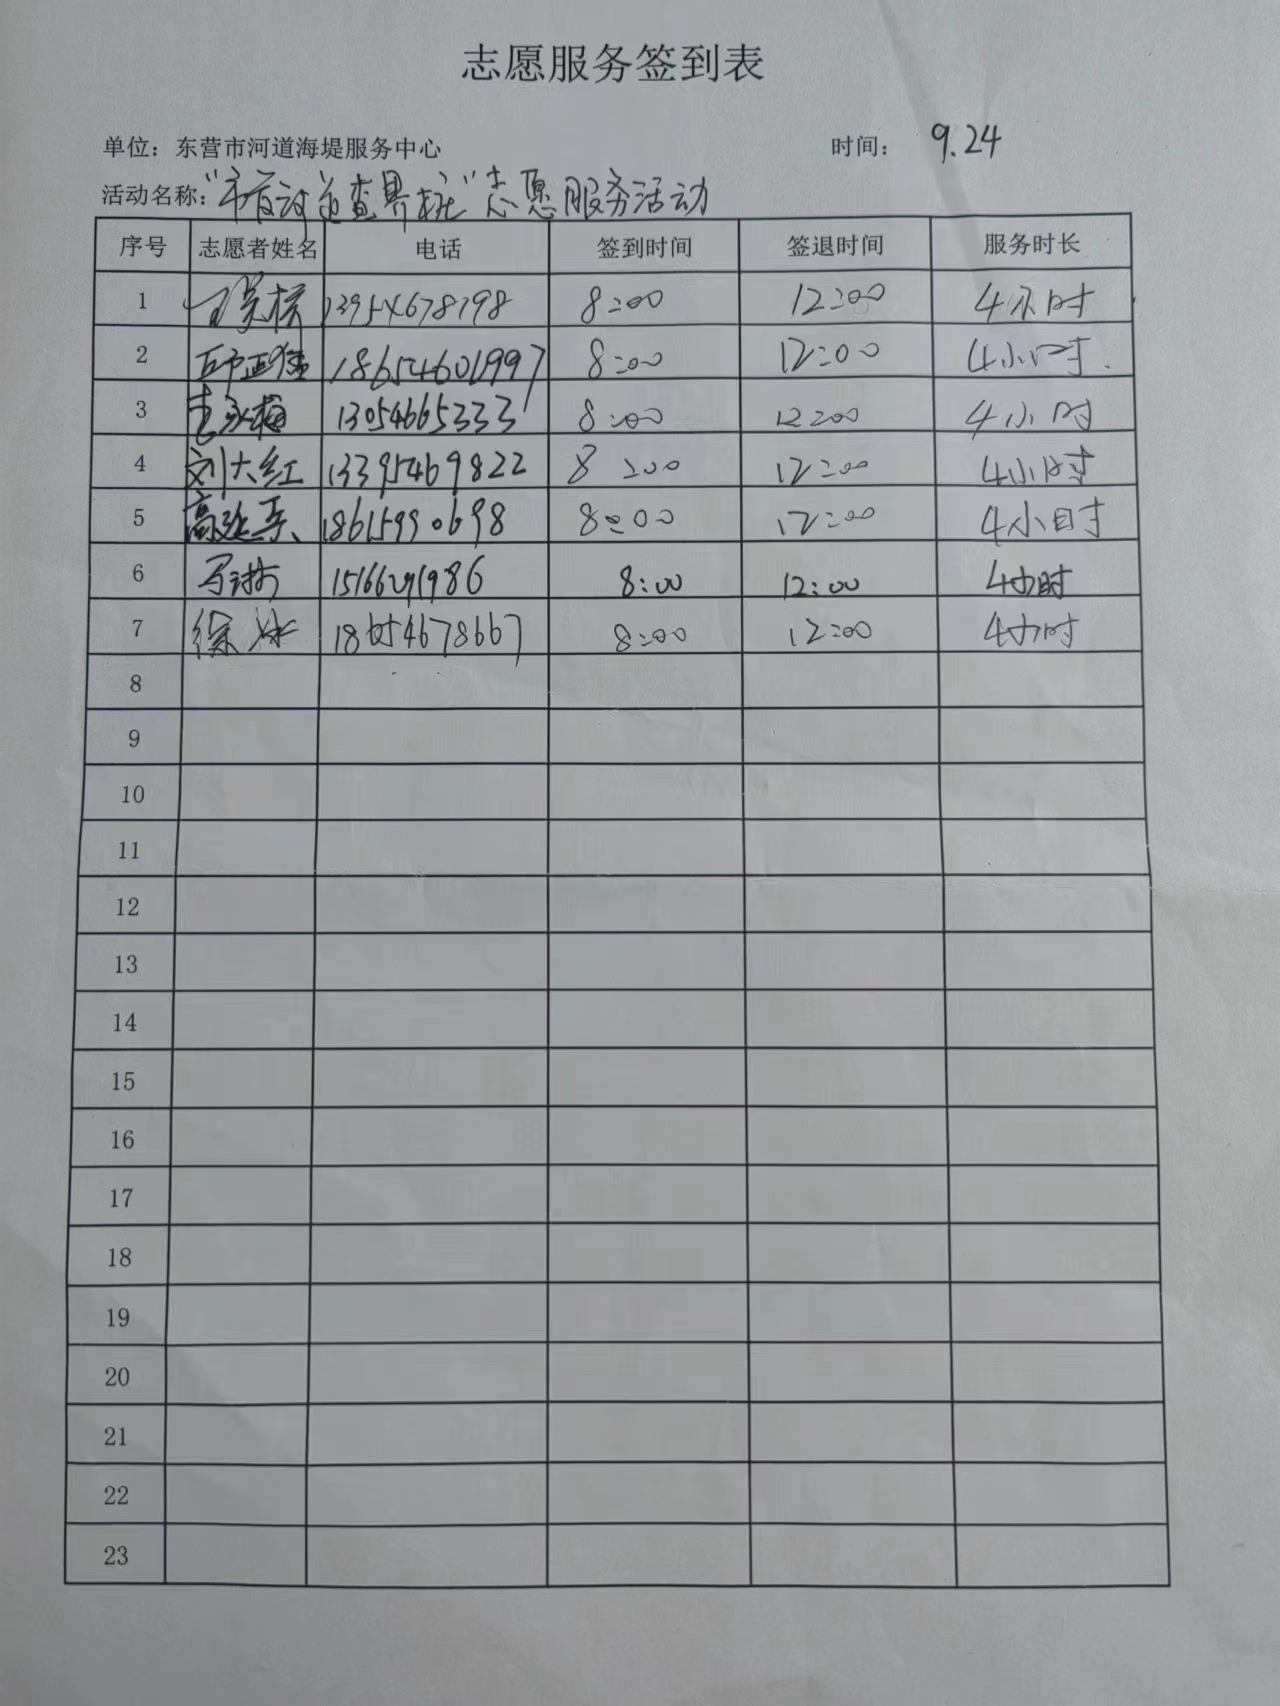 志愿服务签到表
单位：东营市河道海堤服务中心 时间： 9.24
活动名称："市 河道查界桩"志愿服务活动
序号 志愿者姓名 电话 签到时间 签退时间 服务时长
1 8:00 12:00 4小时
2 18654601997 8:00 12:00 4小时.
3 13054665333 8:00 12:00 4小时
4 刘大红 13395469822 8:00 12:00 4小时
5 18615990698 8:00 12:00 4小时
6 马琳 15166291986 8:00 12:00 4小时
7 徐冰 8:00 12:00 4小时
8
9
10
11
12
13
14
15
16
17
18
19
20
21
22
23